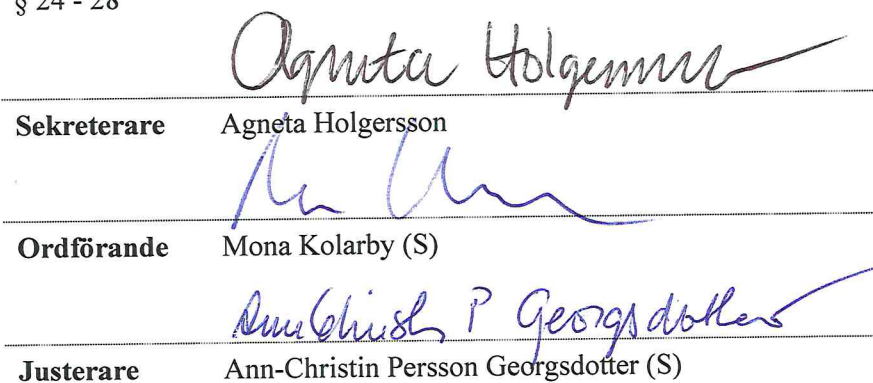 § 24 - 28
Agneta Holgersson
Sekreterare Agneta Holgersson
Ordförande Mona Kolarby (S)
Ann Christin P Georgsdotter
Justerare Ann-Christin Persson Georgsdotter (S)